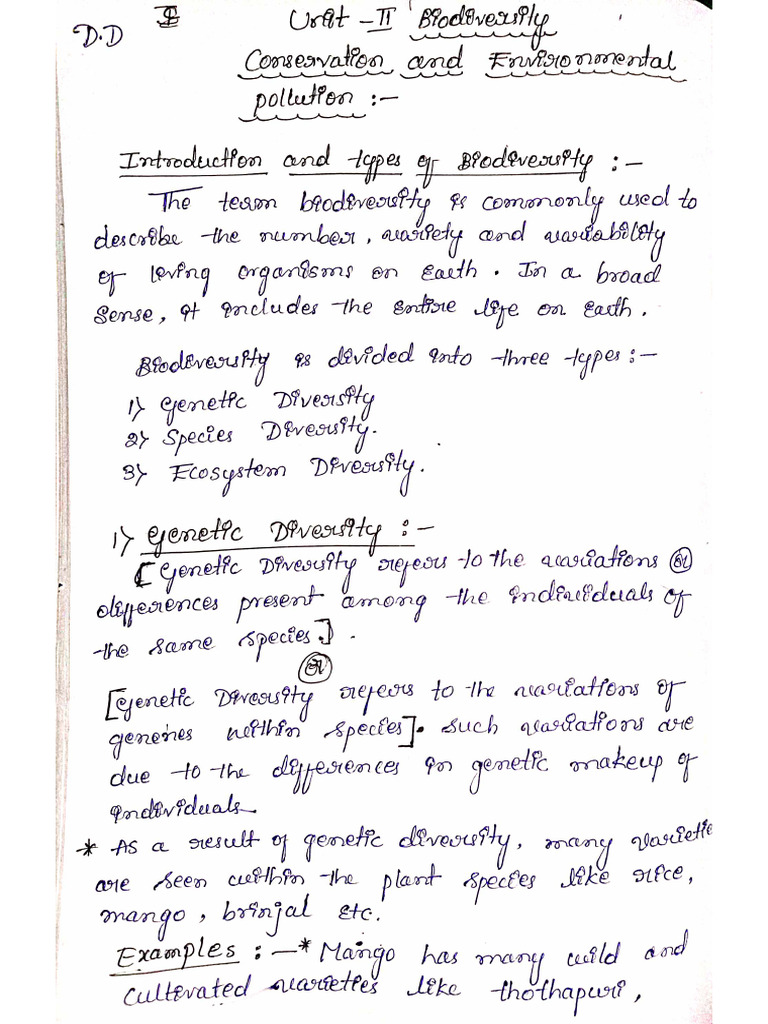 D.D I Unit - II Biodiversity
Conservation and Environmental
pollution :-
Introduction and types of Biodiversity :-
The term biodiversity is commonly used to
describe the number, variety and variability
of living organisms on Earth. In a broad
sense, it includes the entire life on Earth.
Biodiversity is divided into three types :-
1) Genetic Diversity
2) Species Diversity.
3) Ecosystem Diversity.
1) Genetic Diversity :-
[Genetic Diversity refers to the variations or
differences present among the individuals of
the same species].
or
[Genetic Diversity refers to the variations of
genenes within species]. Such variations are
due to the differences in genetic makeup of
individuals.
* As a result of genetic diversity, many varietie
are seen within the plant species like rice,
mango, brinjal etc.
Examples :- * Mango has many wild and
cultivated varieties like thothapuri,